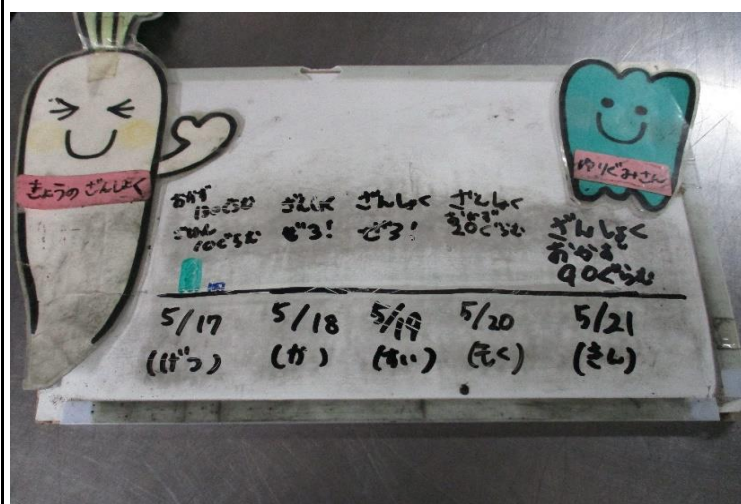 きょうの ざんしょく
ゆりぐみさん
おかず
130ぐらむ
ごはん
10ぐらむ
ざんしょく
ぜろ!
ざんしょく
ぜろ!
ざんしょく
おかず
20ぐらむ
ざんしょく
おかず
90ぐらむ
5/17
5/18
5/19
5/20
5/21
(げつ)
(か)
(すい)
(もく)
(きん)